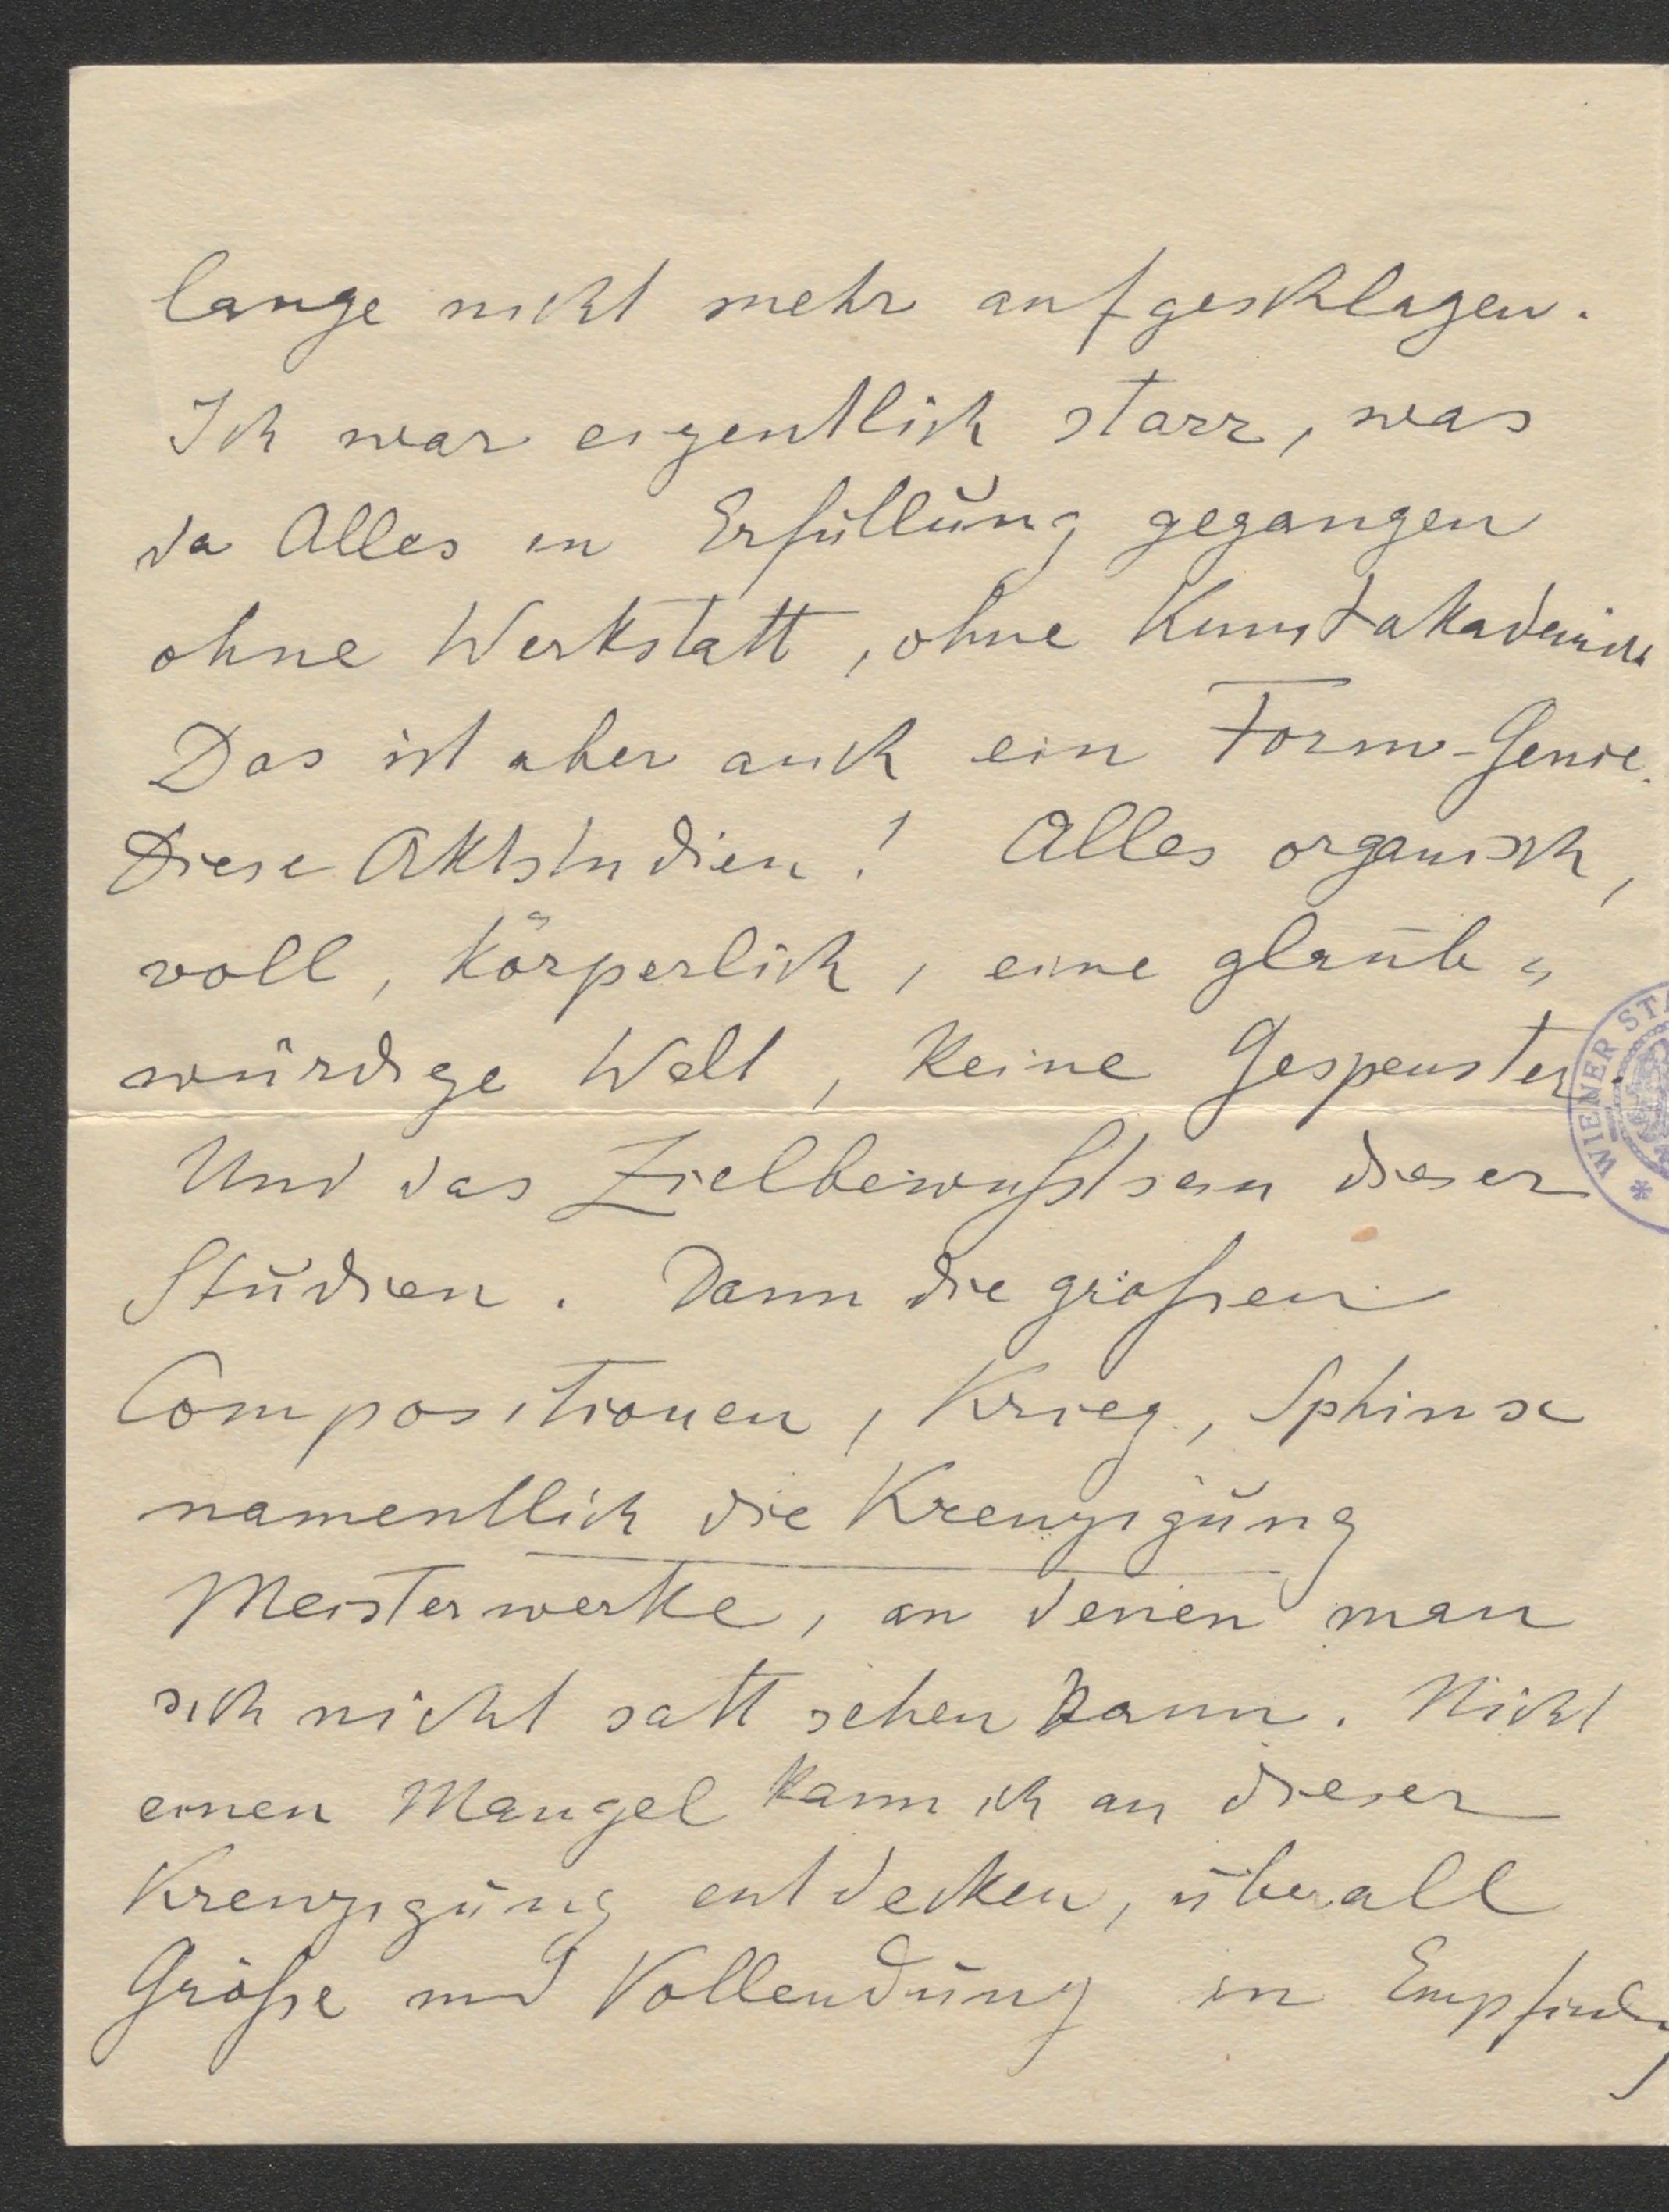 lange nicht mehr aufgeschlagen.
Ich war eigentlich starr, was
da Alles in Erfüllung gegangen
ohne Werkstatt, ohne
Das ist aber auch ein Form-Genie.
Diese Aktstudien! Alles organisch,
voll, körperlich, eine glaub„
würdige Welt, keine Gespenster.
Und das Zielbewußtsein dieser
Studien. Dann die großen
Compositionen, Krieg, Sphinx
namentlich die Kreuzigung
Meisterwerke, an denen man
sich nicht satt sehen kann. Nicht
einen Mangel kann ich an dieser
Kreuzigung entdecken, überall
Größe und Vollendung in Empfindung
WIENER